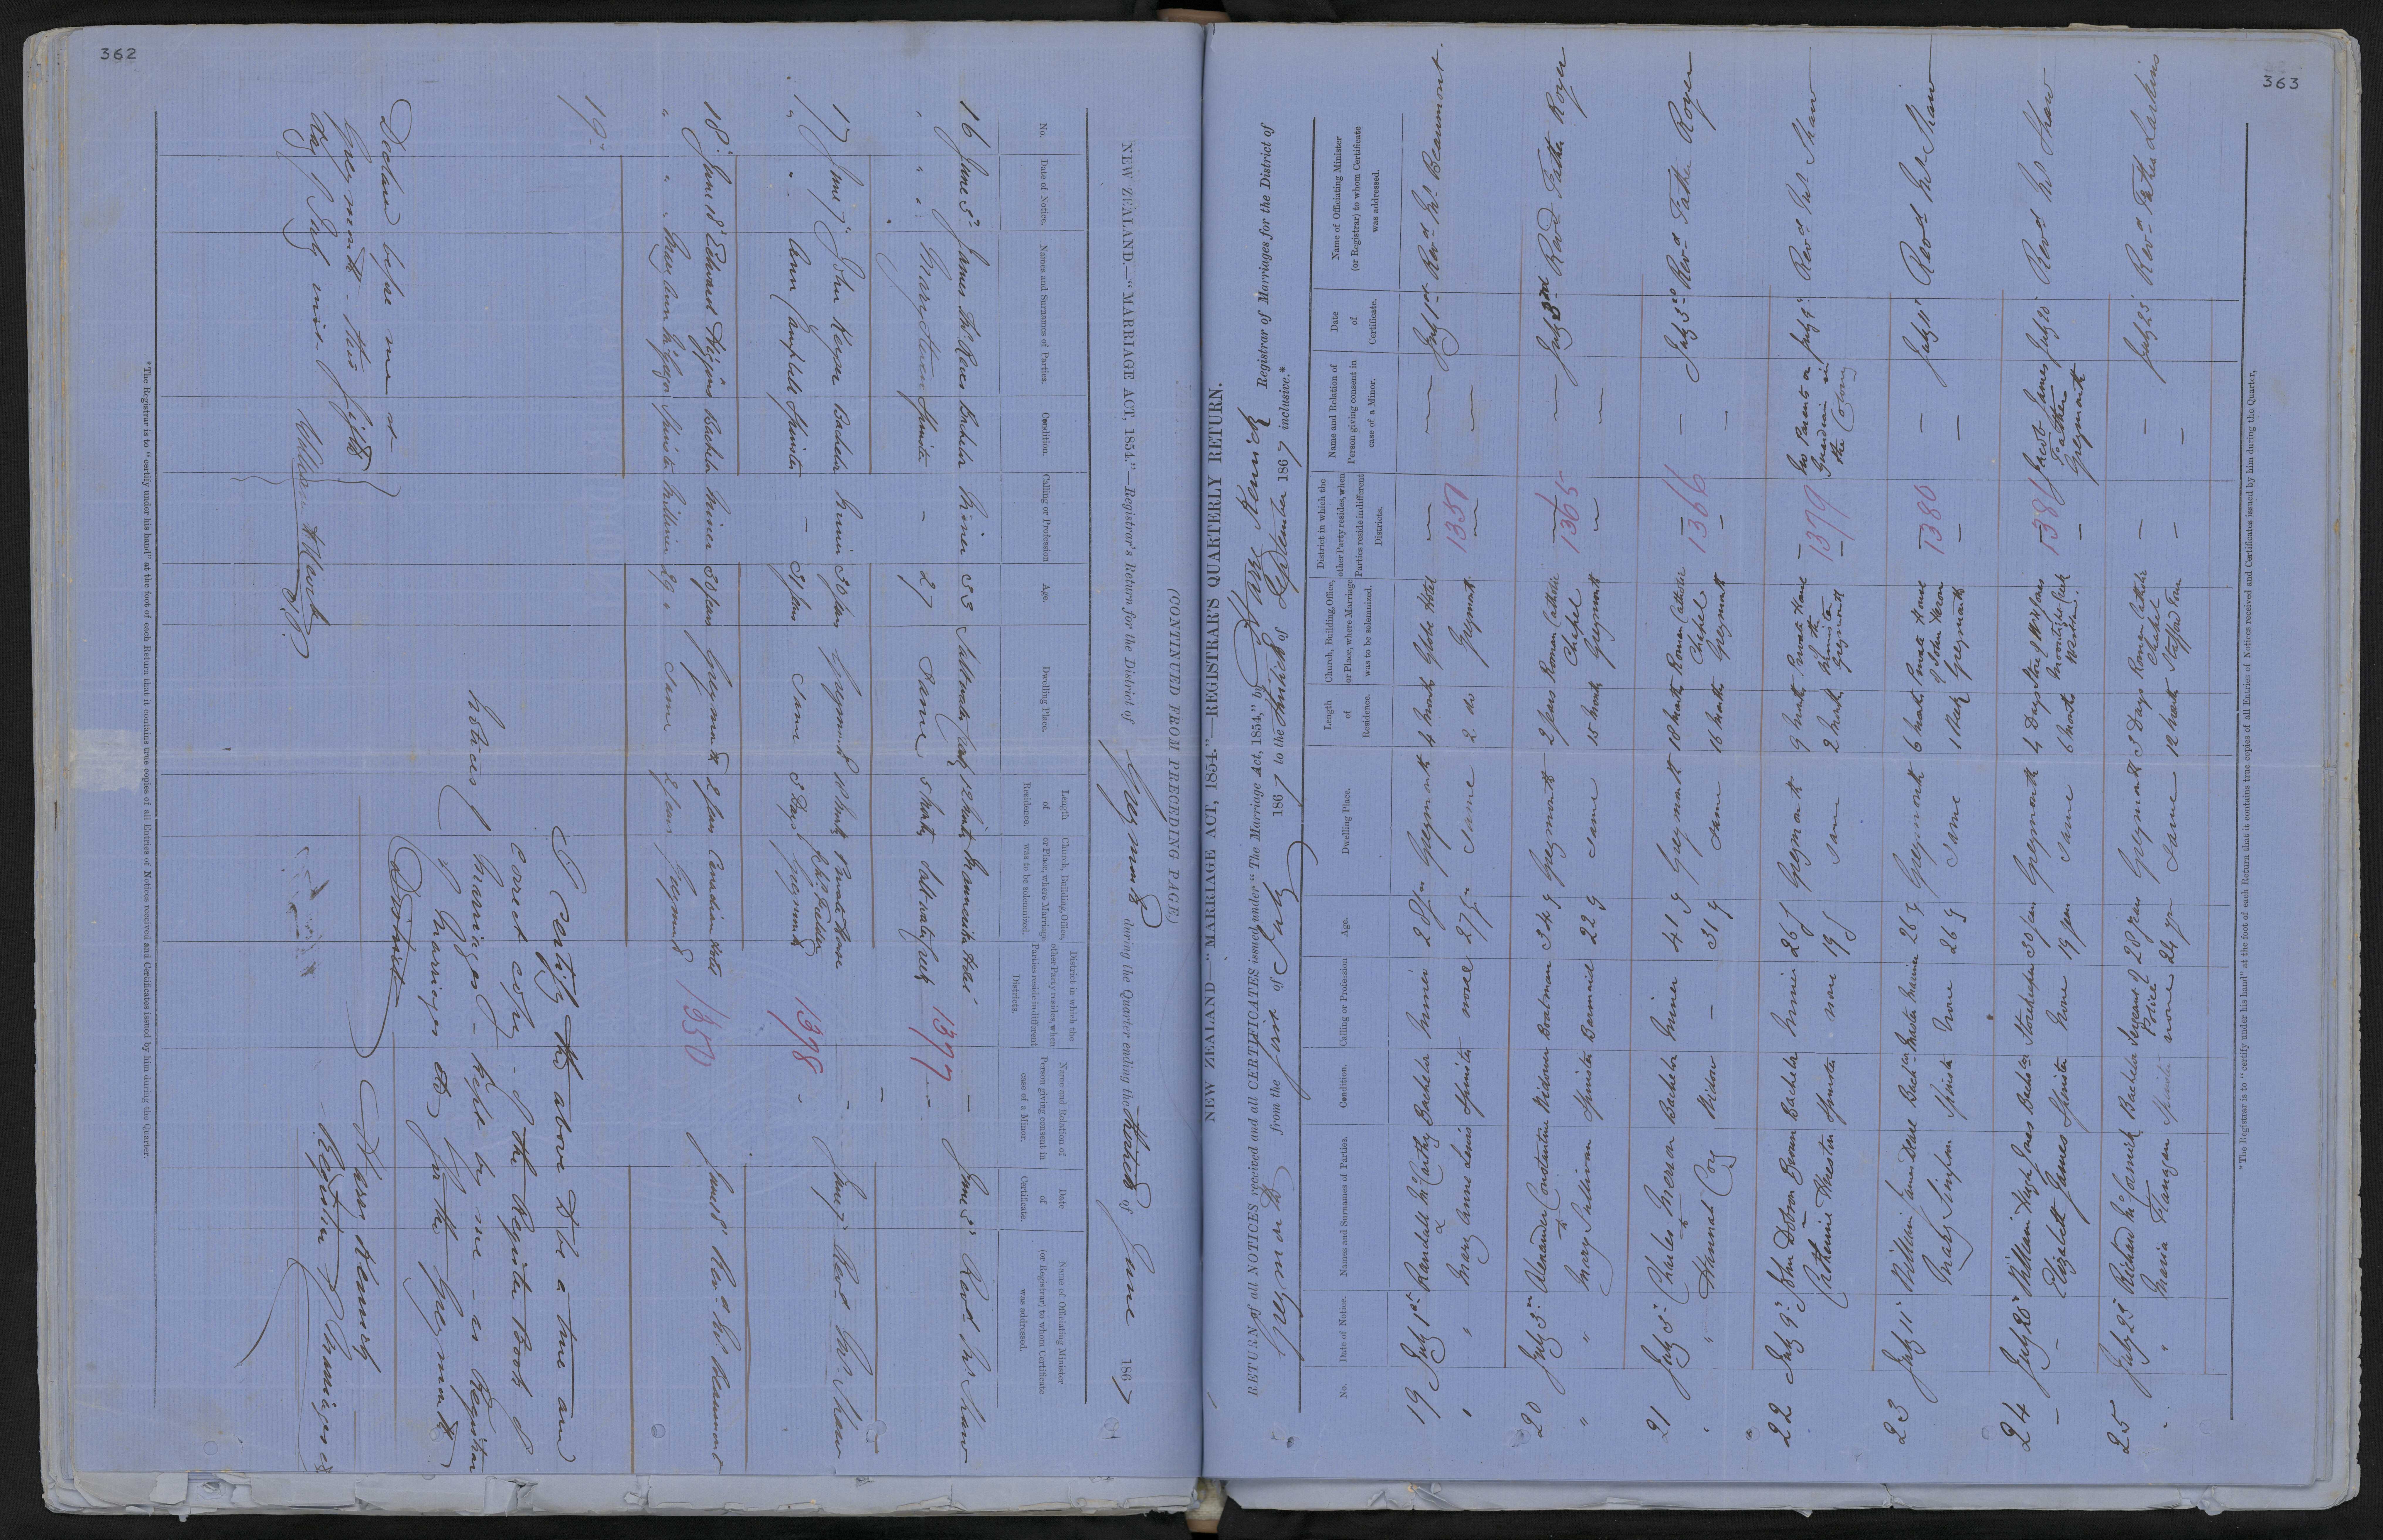 362
(CONTINUED FROM PRECEDING PAGE.)
NEW ZEALAND.—"MARRIAGE ACT, 1854."—Registrar's Return for the District of Greymouth during the Quarter ending the Thirtieth of June 1867
No. Date of Notice. Names and Surnames of Parties. Condition. Calling or Profession Age. Dwelling Place. Length of Residence. Church, Building, Office, or Place, where Marriage was to be solemnized. District in which the other Party resides, when Parties reside in different Districts. Name and Relation of Person giving consent in case of a Minor. Date of Certificate. Name of Officiating Minister (or Registrar) to whom Certificate was addressed.
16 June 5 James Bachelor Miner 33 12 Months Hotel — June 5 Revd Mr Shaw
" " " Mary Spinster — 27 Same 5 Months 1397 -
17 June 7 John Bachelor Miner 30 years Greymouth 10 Months Private House — June 7 Revd Mr Shaw
" " Ann Campbell Spinster — 31 years Same 3 Days Greymouth 1398 -
18 June 18 Edward Higgins Bachelor Miner 30 years Greymouth 2 years Canadian Hotel June 18 Revd Mr Beaumont
" " " Mary Ann Spinster Milliner 29 " Same 2 years Greymouth 1350
19
I certify the above to be a true and
correct copy of the Register Book of
Notices of Marriages - kept by me - as Registrar
of Marriages &c for the Greymouth
District
Ware Kenrick
Registrar of Marriages &c
Declared before me at
Greymouth this fifth
day of July
William H J.P.
*The Registrar is to "certify under his hand" at the foot of each Return that it contains true copies of all Entries of Notices received and Certificates issued by him during the Quarter.
363
NEW ZEALAND—"MARRIAGE ACT, 1854."—REGISTRAR'S QUARTERLY RETURN.
RETURN of all NOTICES received and all CERTIFICATES issued under "The Marriage Act, 1854," by Ware Kenrick Registrar of Marriages for the District of
Greymouth from the first of July 1867 to the Thirtieth of September 1867 inclusive.*
No. Date of Notice. Names and Surnames of Parties. Condition. Calling or Profession Age. Dwelling Place. Length of Residence. Church, Building, Office, or Place, where Marriage was to be solemnized. District in which the other Party resides, when Parties reside in different Districts. Name and Relation of Person giving consent in case of a Minor. Date of Certificate. Name of Officiating Minister (or Registrar) to whom Certificate was addressed.
19 July 1st Randall McCarthy Bachelor Miner 28 yrs Greymouth 4 Months Globe Hotel — — July 1st Revd Mr Beaumont.
" " & Mary Anne Lewis Spinster none 27 yrs Same 2 do Greymouth 1357 —
20 July 3rd Alexander Constantine Widower Boatman 34 y Greymouth 2 years Roman Catholic Chapel — — July 3rd Revd Father Royer
" " & Mary Sullivan Spinster Barmaid 22 y Same 15 Months Greymouth 1365 —
21 July 5 Charles Bachelor Miner 41 y Greymouth 18 Months Roman Catholic Chapel — — July 5 Revd Father Royer
" " & Hannah Coy Widow — 31 y Same 16 Months Greymouth 1366 —
22 July 9 John Dobson Brown Bachelor Miner 26 y Greymouth 9 Months Private House of the Minister — No Parents or Guardian in the Colony July 9 Revd Mr Shaw
" Catherine Weston Spinster none 19 y Same 2 Months Greymouth 1379 —
23 July 11 William James Bachelor Master Mariner 26 y Greymouth 6 Months Private House of John Heron — — July 11 Revd Mr Shaw
Mary Simpson Spinster None 26 y Same 1 Week Greymouth 1380 —
24 July 20 William Hugh Jones Bachelor Storekeeper 30 years Greymouth 4 Days Store of W H Jones — Jacob James Father Greymouth July 20 Revd Mr Shaw
— — Elizabeth James Spinster None 19 years Same 6 Months 1386 —
25 July 23 Richard Bachelor Sergeant of Police 28 years Greymouth 3 Days Roman Catholic Chapel — — July 23 Revd Father Larkins
" " Maria Flanagan Spinster none 24 yrs Same 12 Months Stafford Town — —
*The Registrar is to "certify under his hand" at the foot of each Return that it contains true copies of all Entries of Notices received and Certificates issued by him during the Quarter.